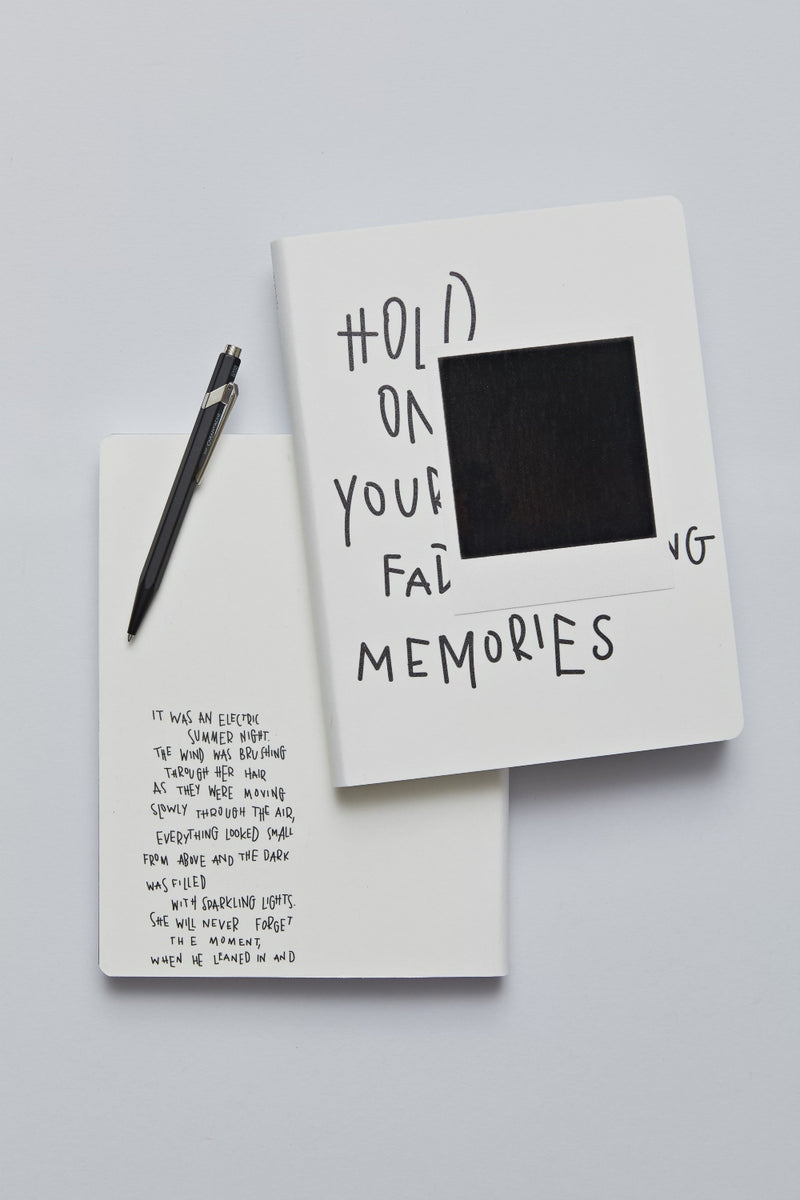 HOLD
ON
YOUR
FAD NG
MEMORIES
IT WAS AN ELECTRIC
SUMMER NIGHT.
THE WIND WAS BRUSHING
THROUGH HER HAIR
AS THEY WERE MOVING
SLOWLY THROUGH THE AIR,
EVERYTHING LOOKED SMALL
FROM ABOVE AND THE DARK
WAS FILLED
WITH SPARKLING LIGHTS.
SHE WILL NEVER FORGET
THE MOMENT,
WHEN HE LEANED IN AND